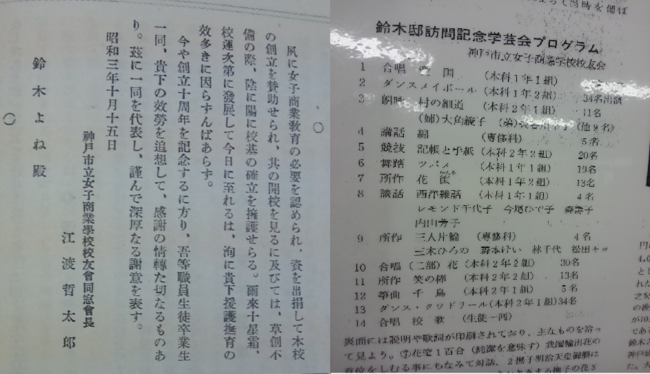 夙に女子商業教育の必要を認められ、資を出捐して本校
の創立を賛助せられ、其の開校を見るに及びては、草創不
備の際、陰に陽に校基の確立を擁護せらる。爾來十星霜、
校運次第に發展して今日に至れるは、洵に貴下援護撫育の
效多きに因らずんばあらず。
今や創立十周年を記念するに方り、吾等職員生徒卒業生
一同、貴下の效勞を追想して、感謝の情轉た切なるものあ
り。茲に一同を代表し、謹んで深厚なる謝意を表す。
昭和三年十月十五日
神戸市立女子商業學校校友會同窓會長
江渡哲太郎
鈴木よね殿
鈴木邸訪問記念学芸会プログラム
神戸市立女子商業学校校友会
1 合唱 (本科1年1組)
2 ダンスメイポール (本科1年2組) 34名
3 村の細道 (本科2年1組) 11名
(姉)大角綾子 (他9名)
4 談話 (専修科) 5名
5 競技 記帳と手紙 (本科2年2組) 20名
6 舞踏 ツバメ (本科1年1組) 19名
7 所作 花 (本科1年2組) 13名
8 談話 西洋雑話 (本科2年1組) 4名
レモンド千代子 今尾ひで子
内田芳子
9 所作 三人片輪 (専修科) 4名
三木ひろの 林千代 松田
10 合唱(二部)花 (本科2年2組) 30名
11 所作 笑の棒 (本科2年2組) 13名
12 箏曲 千鳥 (本科2年1組) 5名
13 ダンス・クワドリール(本科2年1組)34名
14 合唱 校歌 (生徒一同)
裏面には説明や歌詞が印刷されており、主なものを拾っ
て見よう。